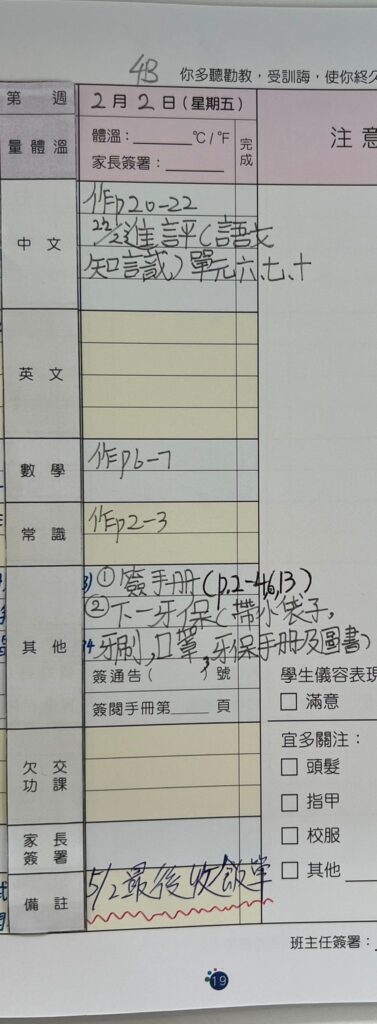 4B 你多聽勸教，受訓誨，使你終久
第 週 2月2日(星期五)
量體溫 體溫：______℃/℉ 完成
家長簽署：______
注意
中文 作p20-22
22/2進評(語文
知識)單元六、七、十
英文
數學 作p6-7
常識 作p2-3
其他 ①簽手册(p.2-4,6,13)
②下一牙保(帶小袋子,
牙刷,口罩,牙保手册及圖書)
簽通告( )號
簽閱手冊第____頁
學生儀容表現
滿意
宜多關注：
頭髮
指甲
校服
其他
欠交功課
家長簽署
備註 5/2最後收飯單
班主任簽署：
19